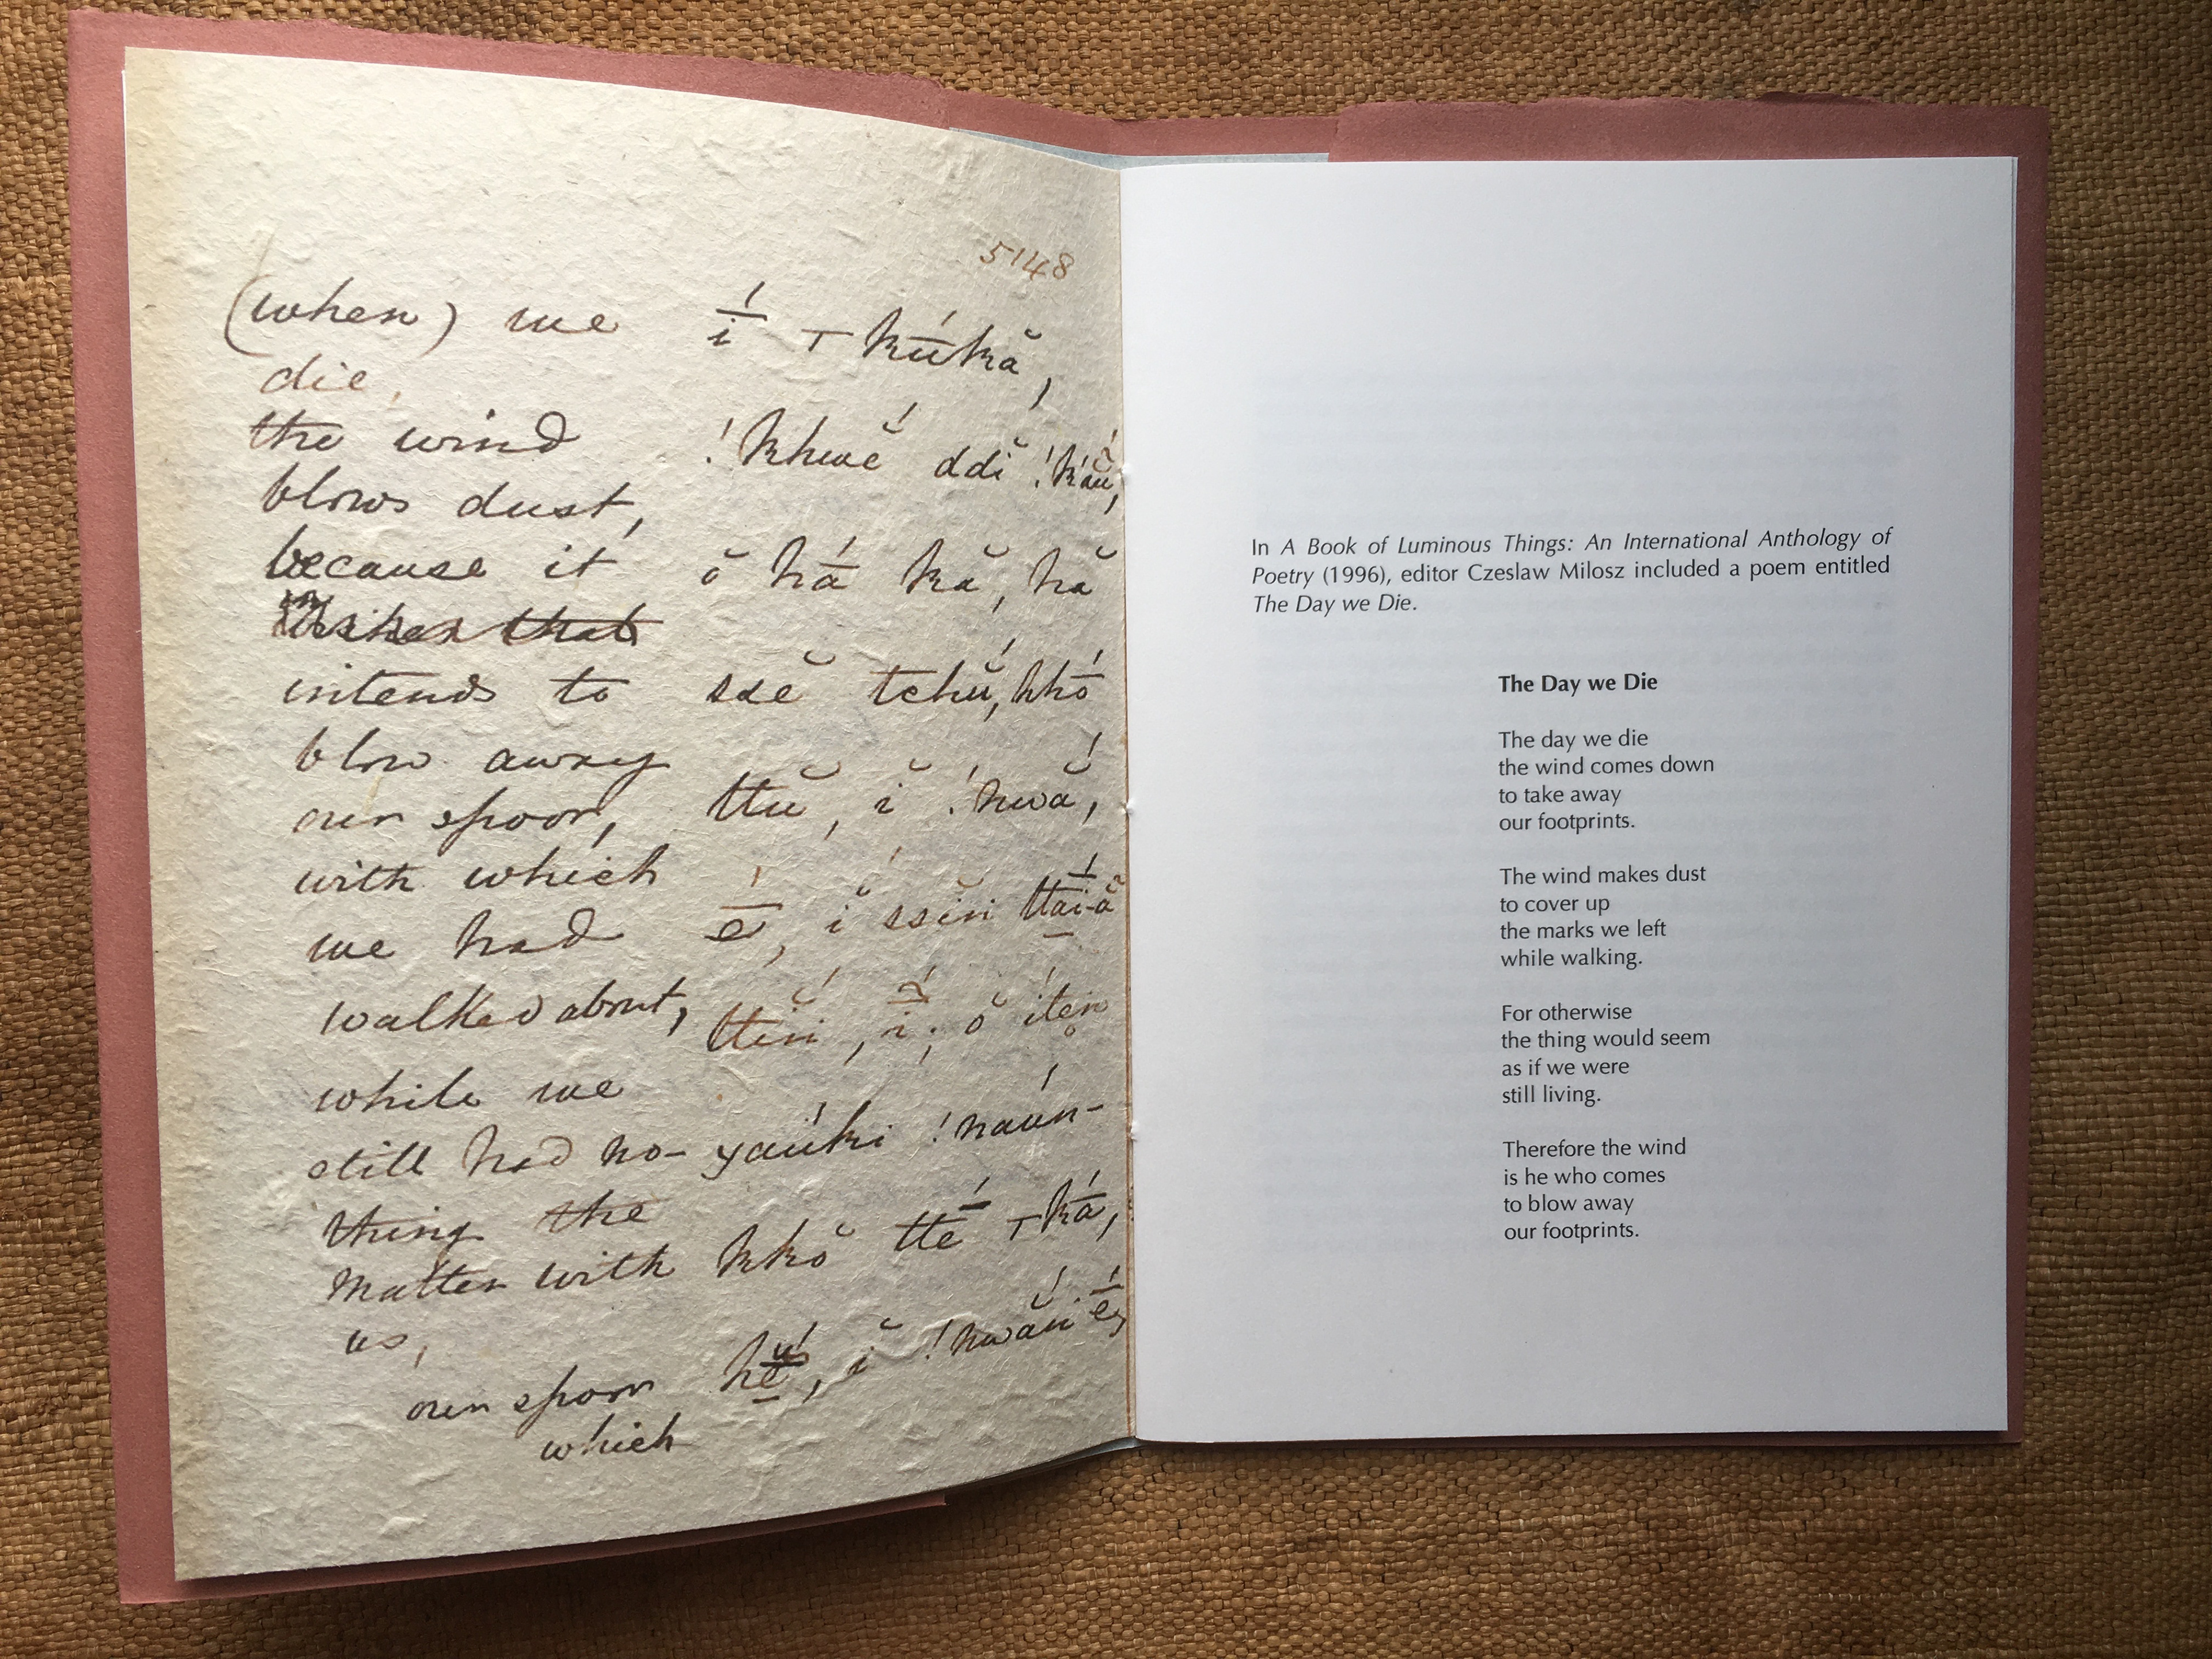 5148
(when) we  í ⊤ kúkă,
die,
the wind  !khwĕ́ ddĭ !k
blows dust,
because it  ŏ há kă, hă
intends to  ssĕ tchŭ́, kkó
blow away
our spoor,  ttŭ, ĭ !nwắ,
with which
we had  é, ĭ ssĭn
walked about,
while we
still had no-  yaúki !naún-
thing the
matter with  kkŏ tté ⊤ ká,
us,
our spoor
which
In A Book of Luminous Things: An International Anthology of
Poetry (1996), editor Czeslaw Milosz included a poem entitled
The Day we Die.
The Day we Die
The day we die
the wind comes down
to take away
our footprints.
The wind makes dust
to cover up
the marks we left
while walking.
For otherwise
the thing would seem
as if we were
still living.
Therefore the wind
is he who comes
to blow away
our footprints.